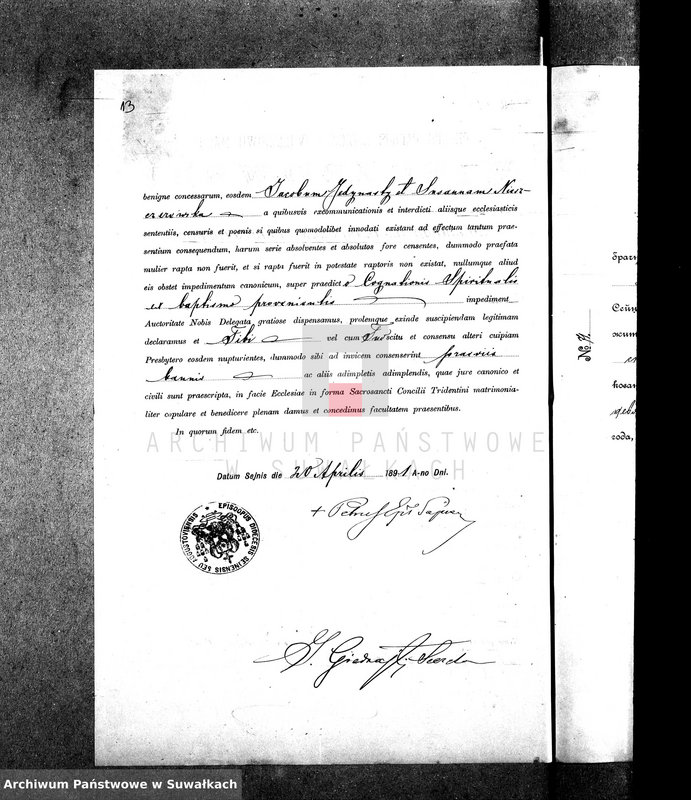 13
benigne concessarum, eosdem Jacobum Jedynasty et Susannam
a quibusvis excommunicationis et interdicti aliisque ecclesiasticis
sententiis, censuris et poenis si quibus quomodolibet innodati existant ad effectum tantum prae-
sentium consequendum, harum serie absolventes et absolutos fore censentes, dummodo praefata
mulier rapta non fuerit, et si rapta fuerit in potestate raptoris non existat, nullumque aliud
eis obstet impedimentum canonicum, super praedicto Cognationis Spiritualis
ex baptismo provenientis impediment
Auctoritate Nobis Delegata gratiose dispensamus, prolemque exinde suscipiendam legitimam
declaramus et Tibi vel cum Tuo scitu et consensu alteri cuipiam
Presbytero eosdem nupturientes, dummodo sibi ad invicem consenserint praeviis
bannis ac aliis adimpletis adimplendis, quae jure canonico et
civili sunt praescripta, in facie Ecclesiae in forma Sacrosancti Concilii Tridentini matrimonia-
liter copulare et benedicere plenam damus et concedimus facultatem praesentibus.
In quorum fidem etc.
ARCHIWUM PAŃSTWOWE
W SUWAŁKACH
Datum Sejnis die 20 Aprilis 1891 A-no Dni.
+ Petrus Eps
EPISCOPUS DIOECESIS SEJNENSIS SEU AUGUSTOVIENSIS
браг
Сейн
жит
№ 7.
кован
года,
Archiwum Państwowe w Suwałkach